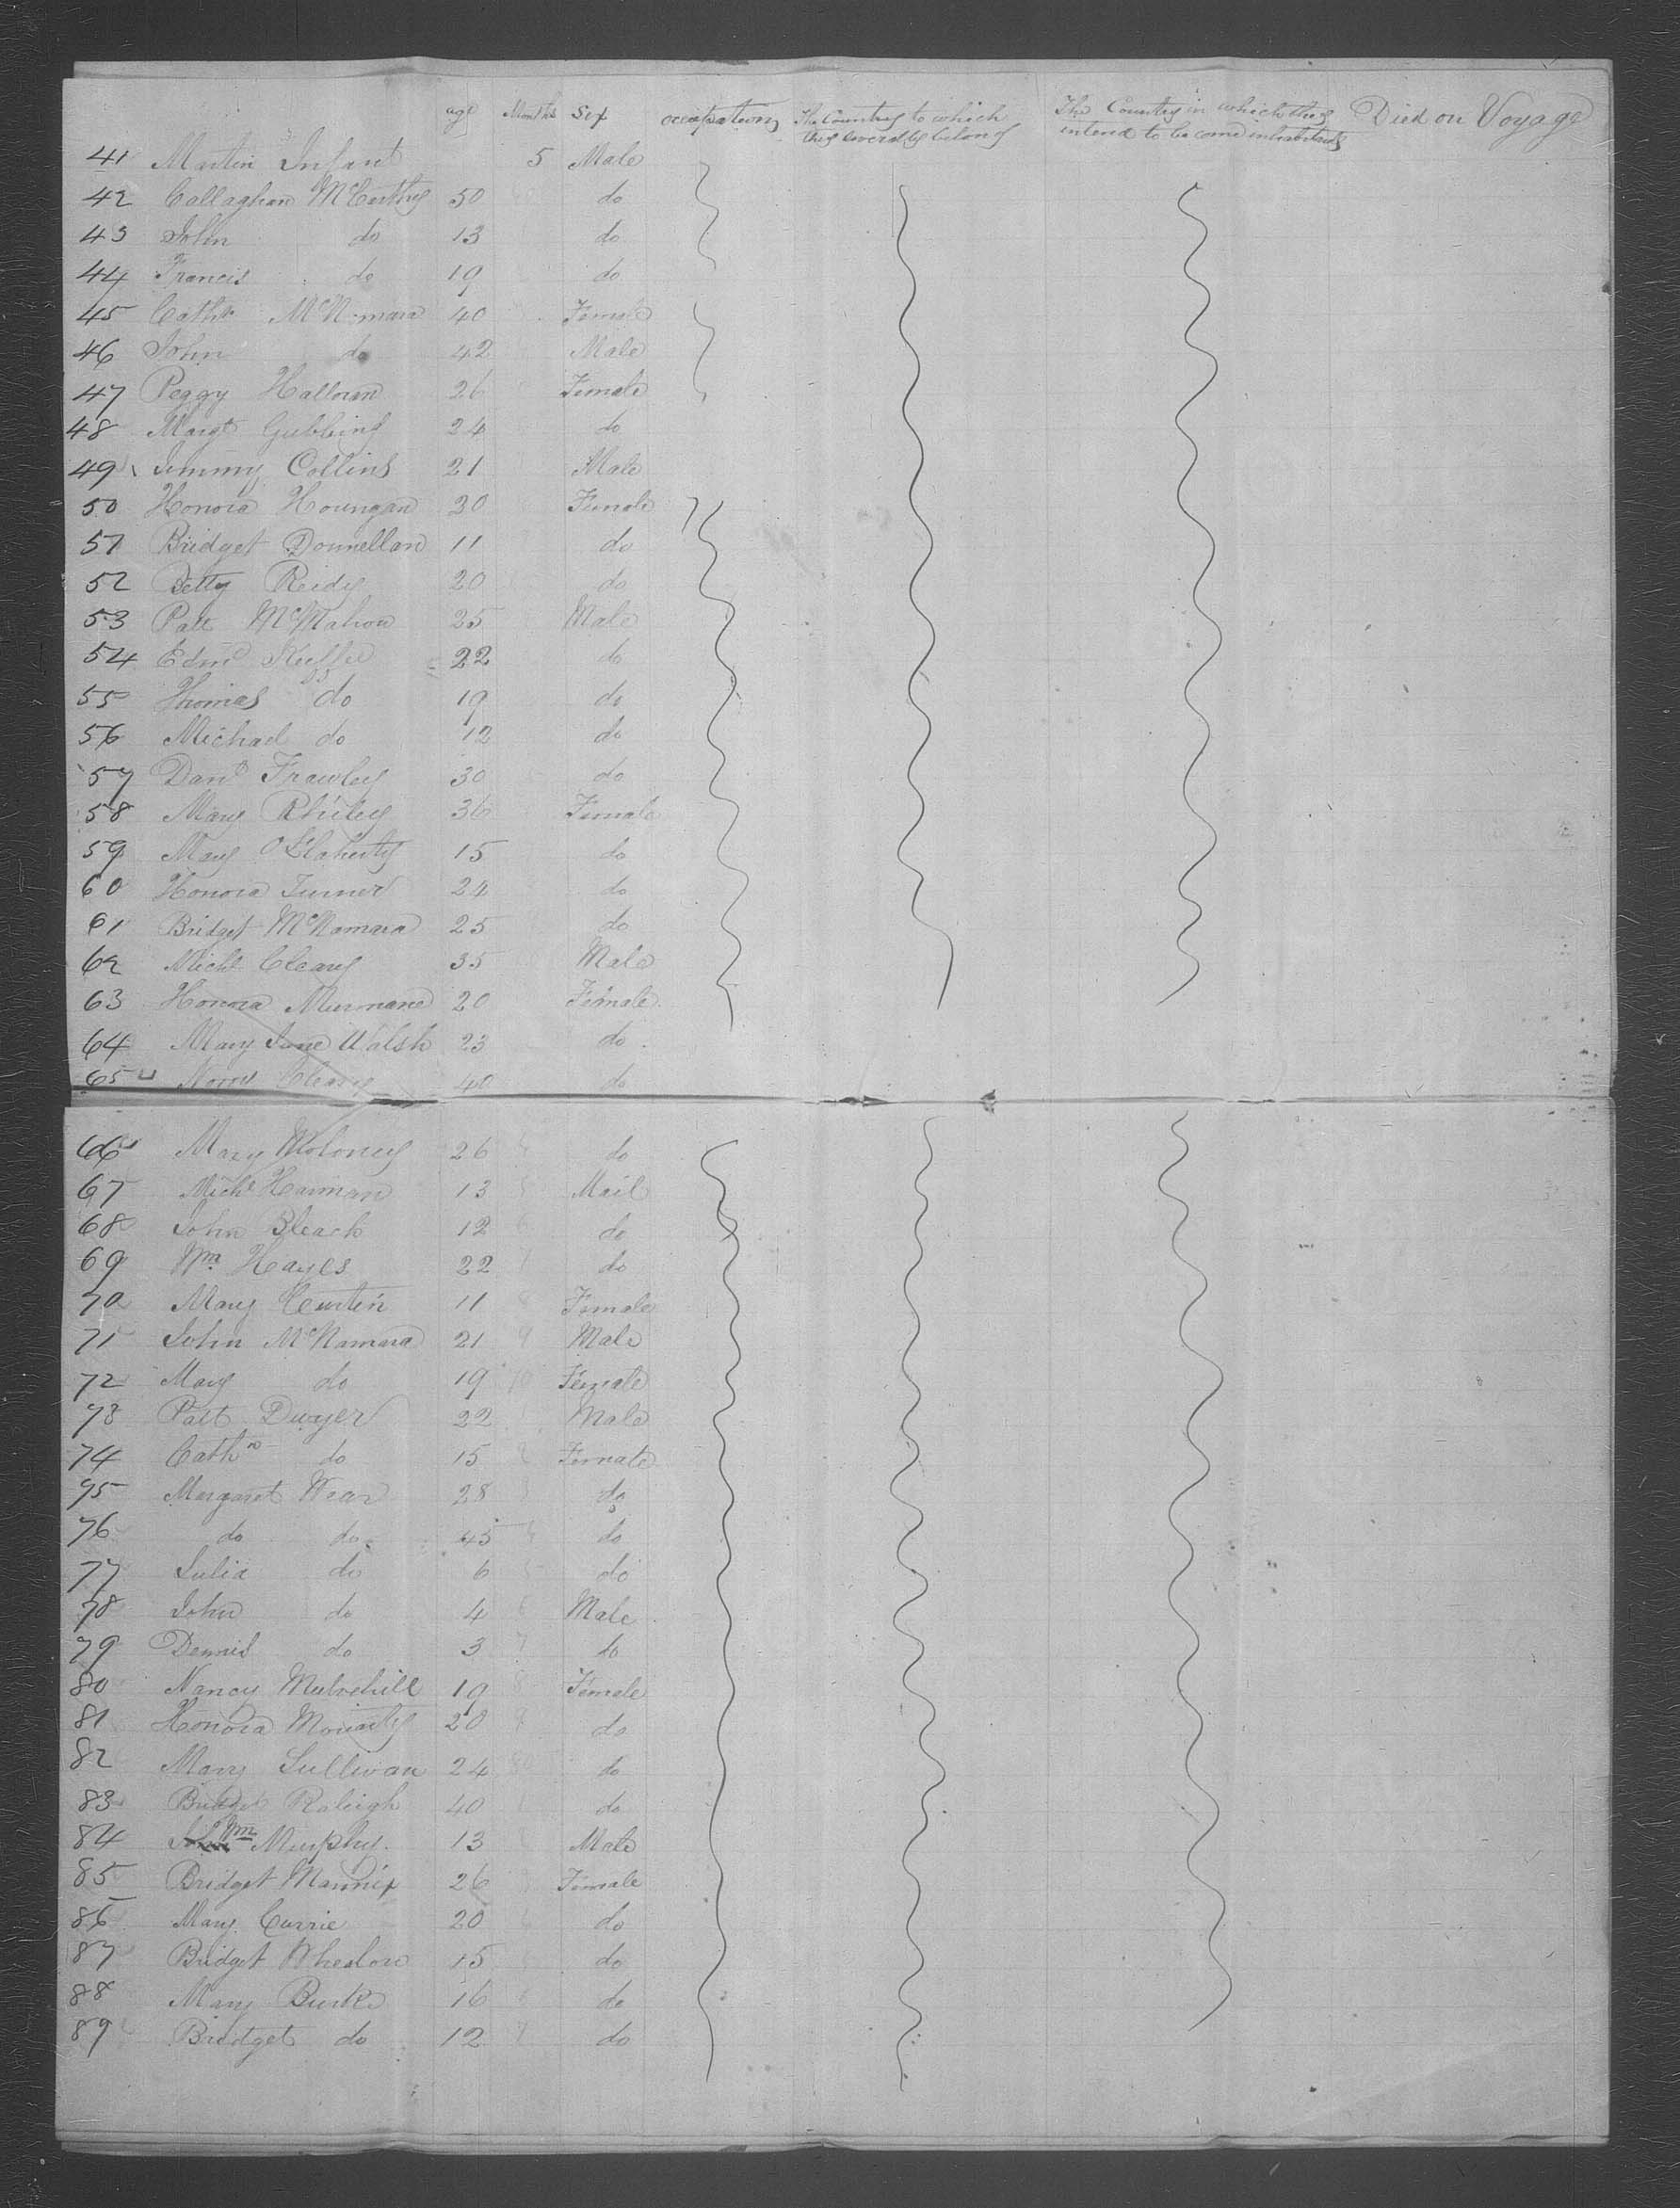 age Months Sex occupation The Country to which they severally belong The Country in which they intend to become inhabitants Died on Voyage
41 Martin Infant 5 Male
42 Callaghan McCarthy 50 do
43 John do 13 do
44 Francis do 19 do
45 Cathe McNamara 40 Female
46 John do 42 Male
47 Peggy Halloran 26 Female
48 Margt Gubbins 24 do
49 Jimmy Collins 21 Male
50 Honora Houngan 30 Female
51 Bridget Donnellan 11 do
52 Betty Reidy 20 do
53 Patt McMahon 25 Male
54 Edmd 22 do
55 Thomas do 19 do
56 Michael do 12 do
57 Danl Frawley 30 do
58 Mary 36 Female
59 Mary O'Flaherty 15 do
60 Honora Turner 24 do
61 Bridget McNamara 25 do
62 Michl Cleary 35 Male
63 Honora Murnane 20 Female
64 Mary Jane Walsh 23 do
65 Cleary 40 do
66 Mary Moloney 26 do
67 Michl 13 Mail
68 John Bleach 12 do
69 Wm Hayes 22 do
70 Mary Curtin 11 Female
71 John McNamara 21 Male
72 Mary do 19 Female
73 Patt Dwyer 22 Male
74 Cathn do 15 Female
75 Margaret Wear 28 do
76 do do 45 do
77 Julia do 6 do
78 John do 4 Male
79 Dennis do 3 do
80 Nancy Mulvehill 19 Female
81 Honora Moriarty 20 do
82 Mary Sullivan 24 do
83 Bridget Raleigh 40 do
84 Wm Murphy 13 Male
85 Bridget Mannix 26 Female
86 Mary Currie 20 do
87 Bridget Whealon 15 do
88 Mary Burke 16 do
89 Bridget do 12 do